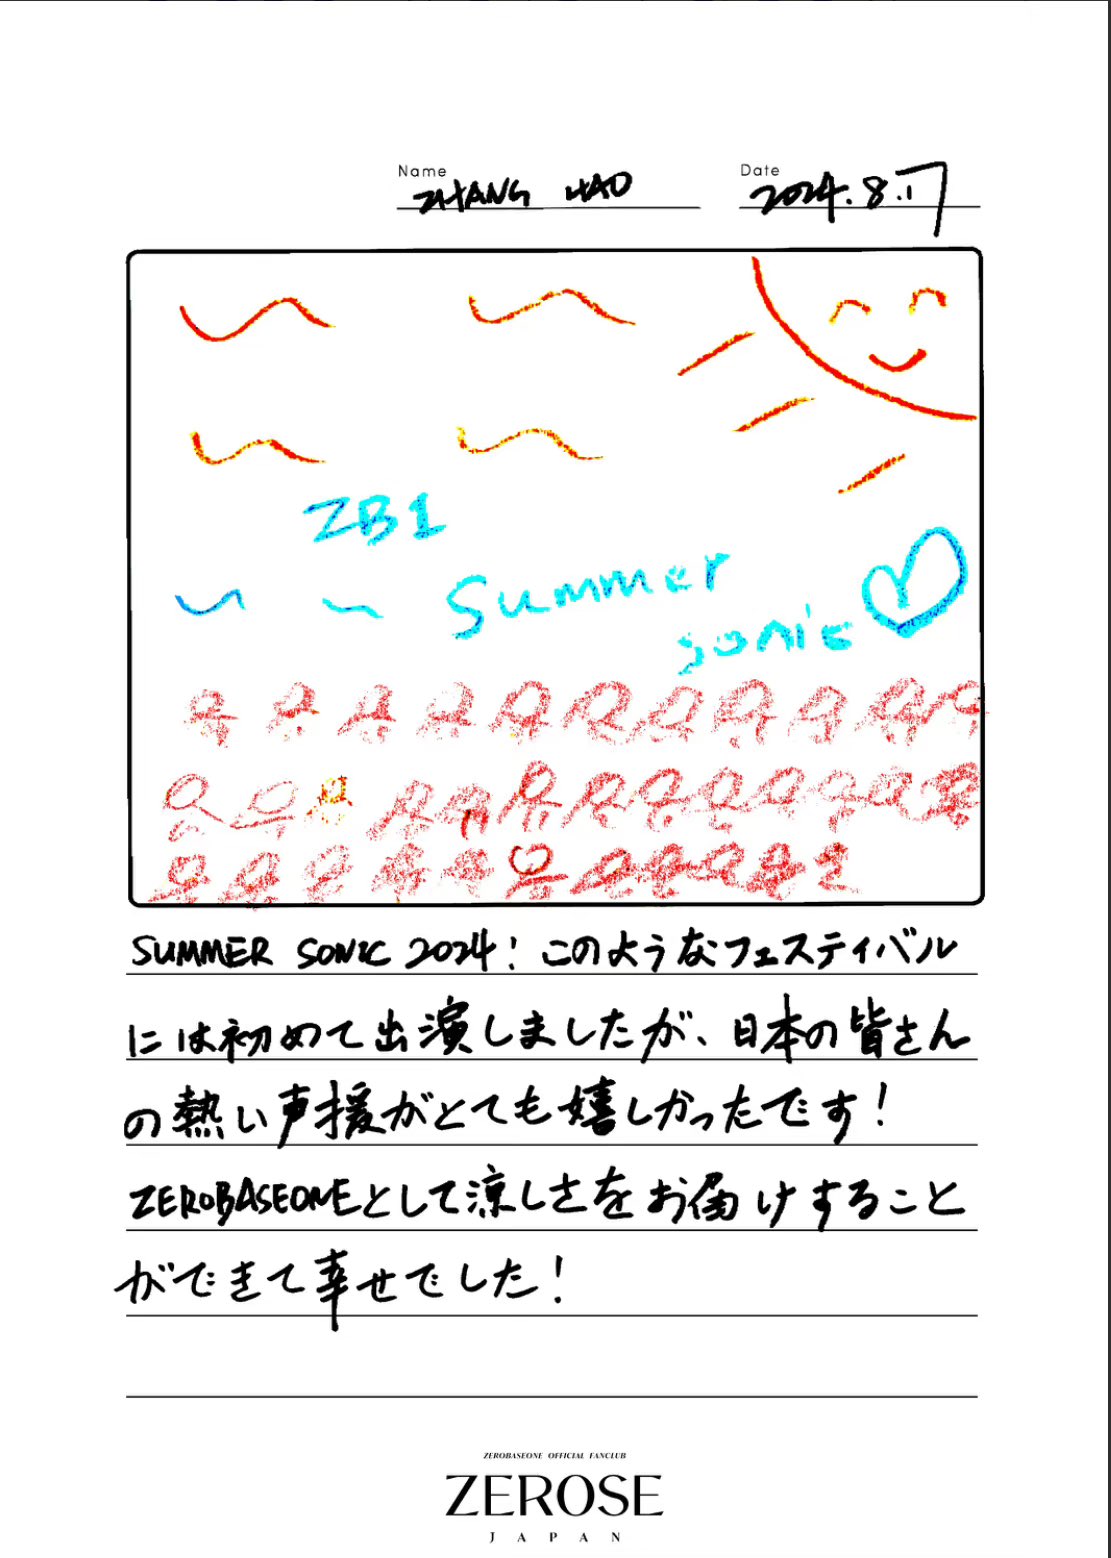 Name
ZHANG HAO
Date
2024.8.17
ZB1
Summer
sonic
SUMMER SONIC 2024! このようなフェスティバル
には初めて出演しましたが、日本の皆さん
の熱い声援がとても嬉しかったです!
ZEROBASEONEとして涼しさをお届けすること
ができて幸せでした!
ZEROBASEONE OFFICIAL FANCLUB
ZEROSE
JAPAN